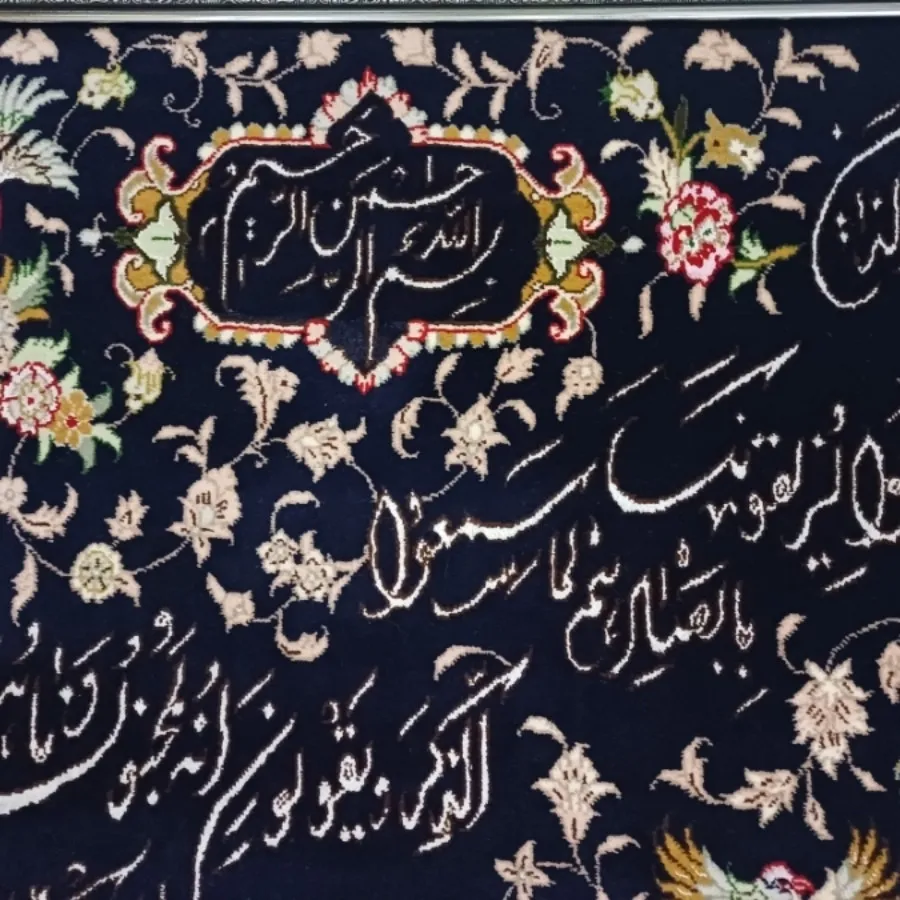 بسم الله الرحمن الرحیم
لیزلقونک
بابصارهم لما سمعوا
الذکر و یقولون انه لمجنون و ما